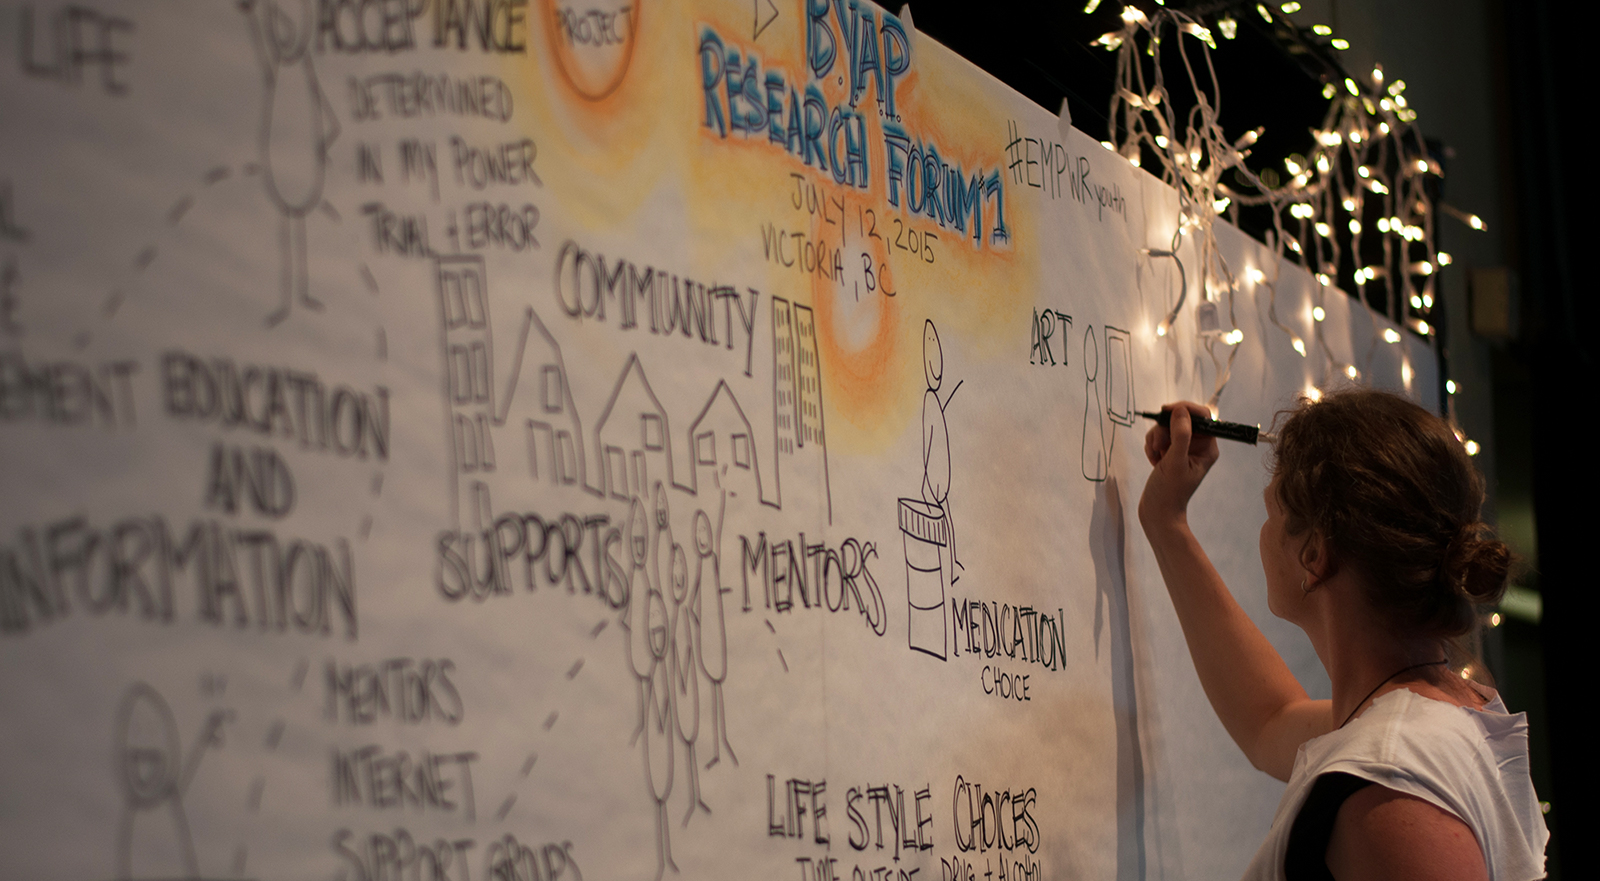 LIFE
ACCEPTANCE
DETERMINED
IN MY POWER
TRIAL + ERROR
PROJECT
B.Y.A.P.
RESEARCH FORUM #1
JULY 12, 2015
VICTORIA, BC
#EMPWRyouth
COMMUNITY
ART
EDUCATION
AND
INFORMATION
SUPPORTS
MENTORS
MEDICATION
CHOICE
MENTORS
INTERNET
SUPPORT GROUPS
LIFE STYLE CHOICES
TIME OUTSIDE DRUG + ALCOHOL